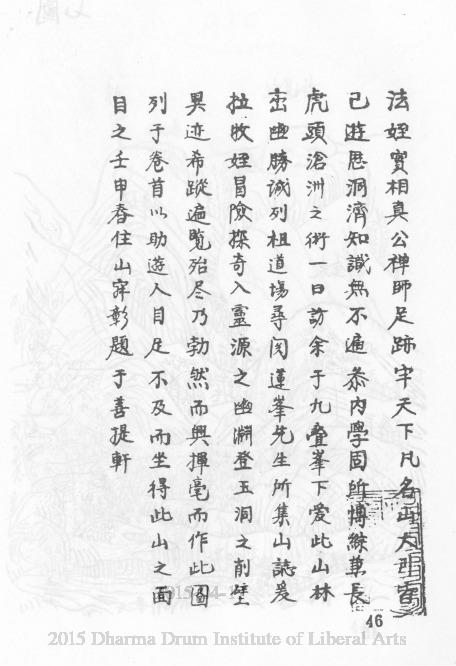 法姪實相真公禅師足跡半天下凡名山大
已遊思洞濟知識無不遍叅内學固所博綜草長
虎頭滄洲之術一日訪余于九叠峯下爱此山林
峦幽勝诚列祖道場尋阅蓮峯先生所集山誌爰
拉牧姪冒險探奇入靈源之幽淵登玉洞之削壁
異迹希蹤遍覧殆尽乃勃然而興揮毫而作此圖
列于卷首以助遊人目足不及而坐得此山之面
目之壬申春住山寀彰題于善提軒
46
2015 Dharma Drum Institute of Liberal Arts